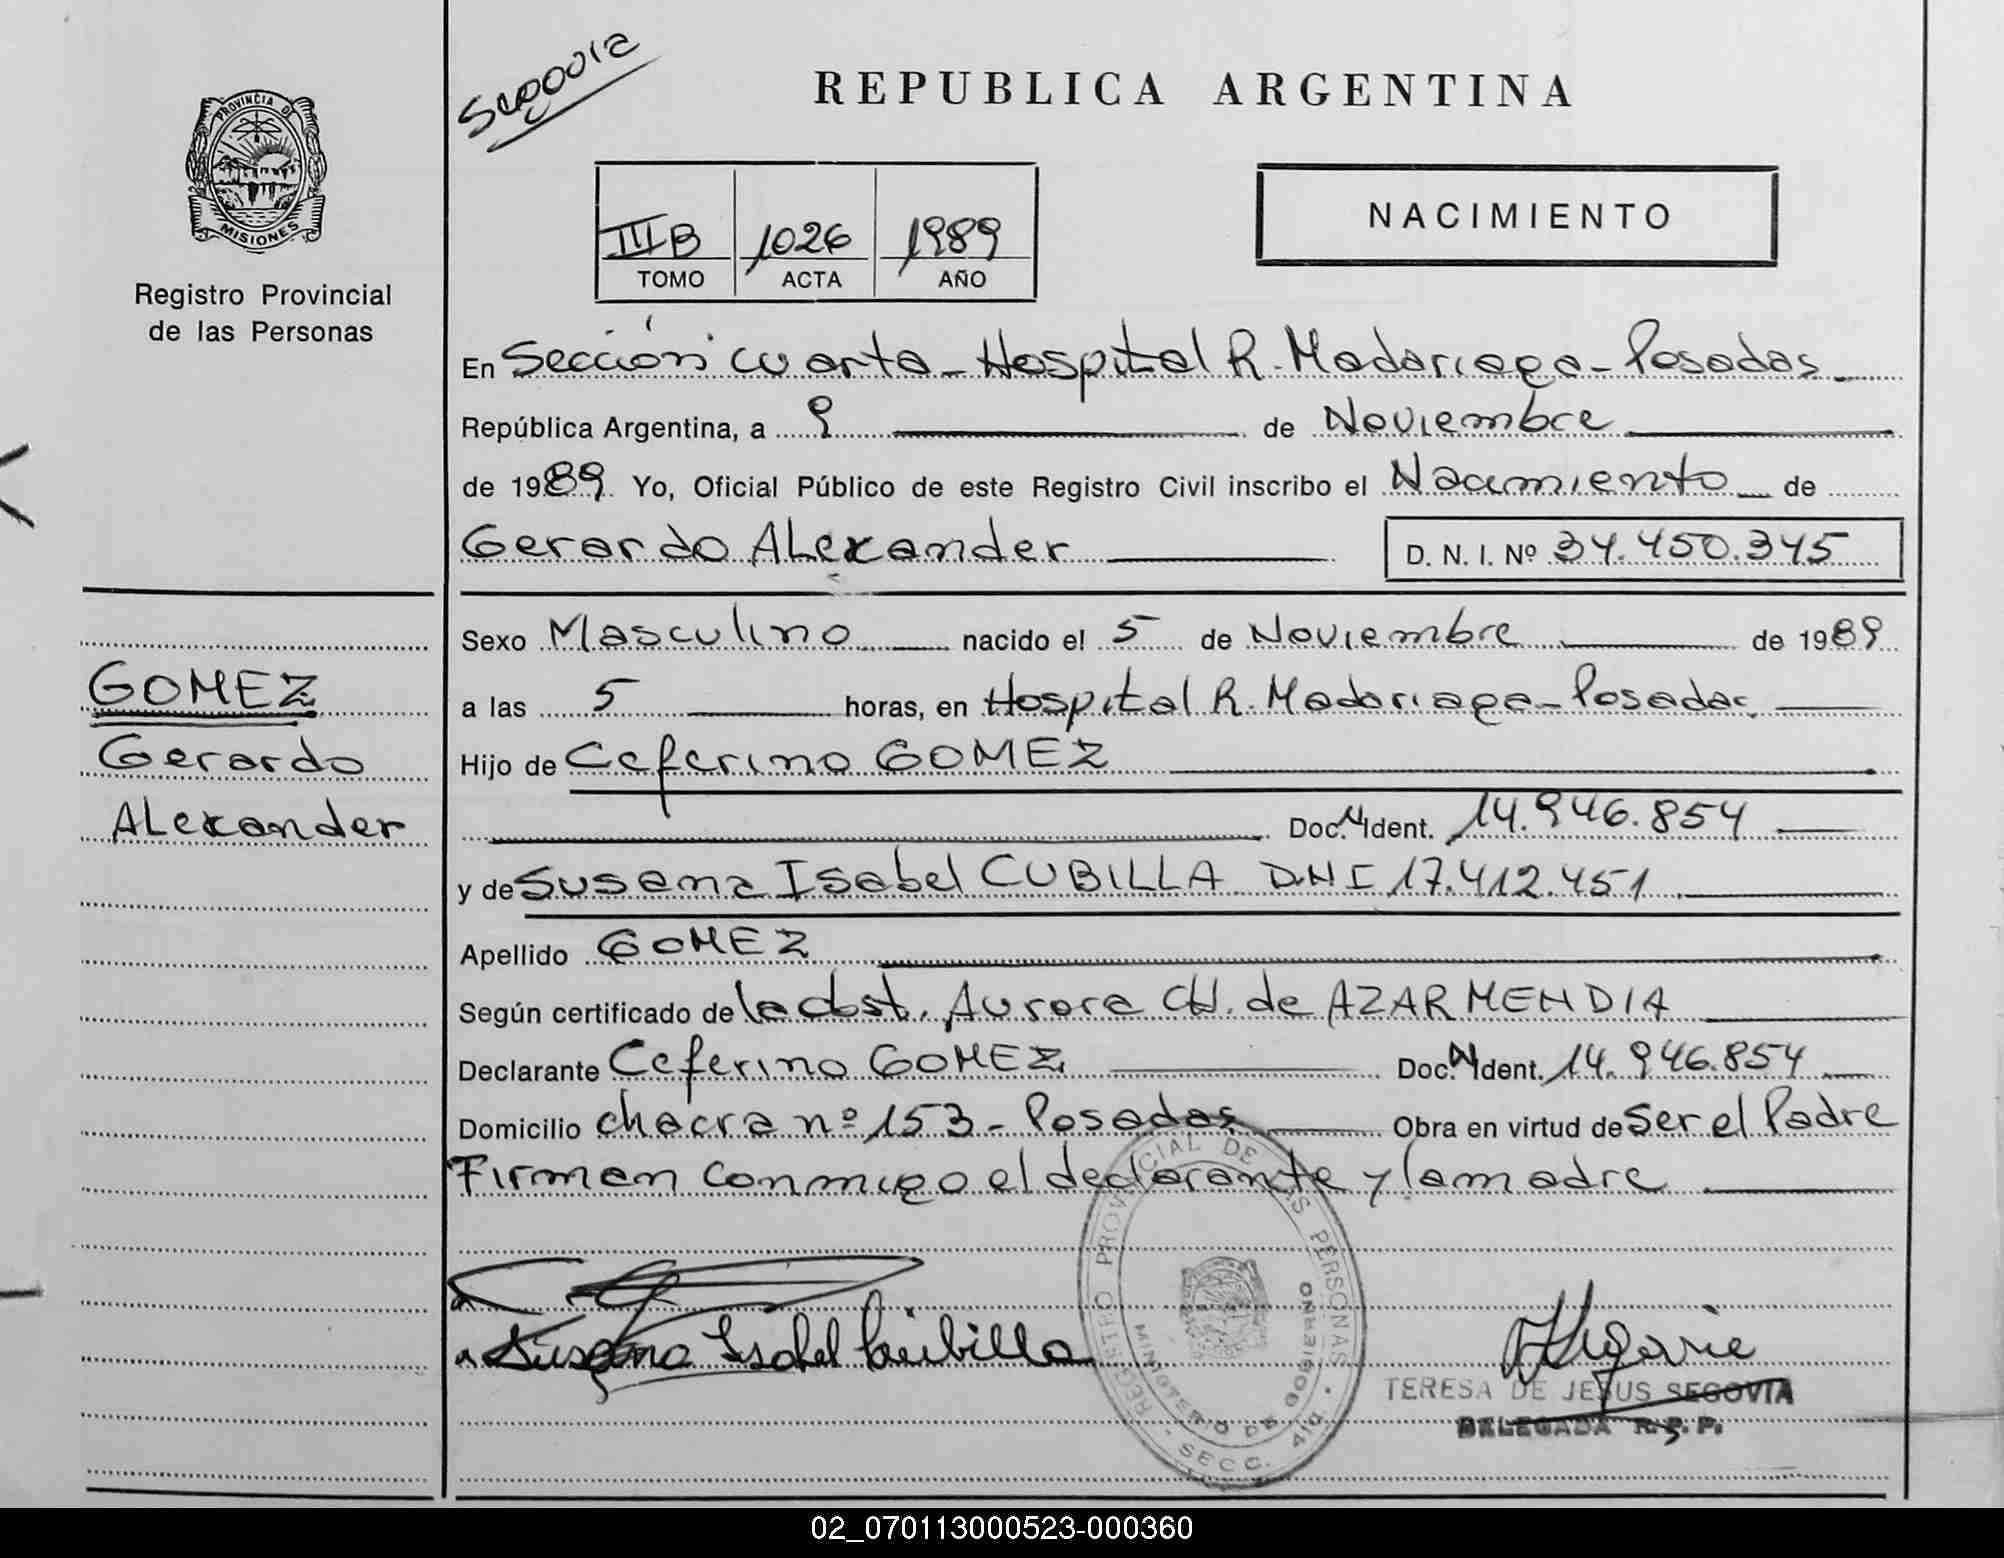 Segovia
REPUBLICA ARGENTINA
PROVINCIA DE
MISIONES
Registro Provincial
de las Personas
III B 1026 1989
TOMO ACTA AÑO
NACIMIENTO
En Sección cuarta - Hospital R. Madariaga - Posadas
República Argentina, a 9 de Noviembre
de 1989 Yo, Oficial Público de este Registro Civil inscribo el Nacimiento de
Gerardo Alexander D. N. I. Nº 34.450.345
Sexo Masculino nacido el 5 de Noviembre de 1989
a las 5 horas, en Hospital R. Madariaga - Posadas
Hijo de Ceferino GOMEZ
Doc. N Ident. 14.946.854
y de Susana Isabel CUBILLA DNI 17.412.451
Apellido GOMEZ
Según certificado de la obst. Aurora CH. de AZARMENDIA
Declarante Ceferino GOMEZ Doc. N Ident. 14.946.854
Domicilio chacra nº 153 - Posadas Obra en virtud de ser el Padre
Firman conmigo el declarante y la madre
GOMEZ
Gerardo
Alexander
Susana Isabel Cubilla
REGISTRO PROVINCIAL DE LAS PERSONAS
MINISTERIO DE GOBIERNO
SECC. 4ta.
TERESA DE JESUS SEGOVIA
DELEGADA R.P.P.
02_070113000523-000360